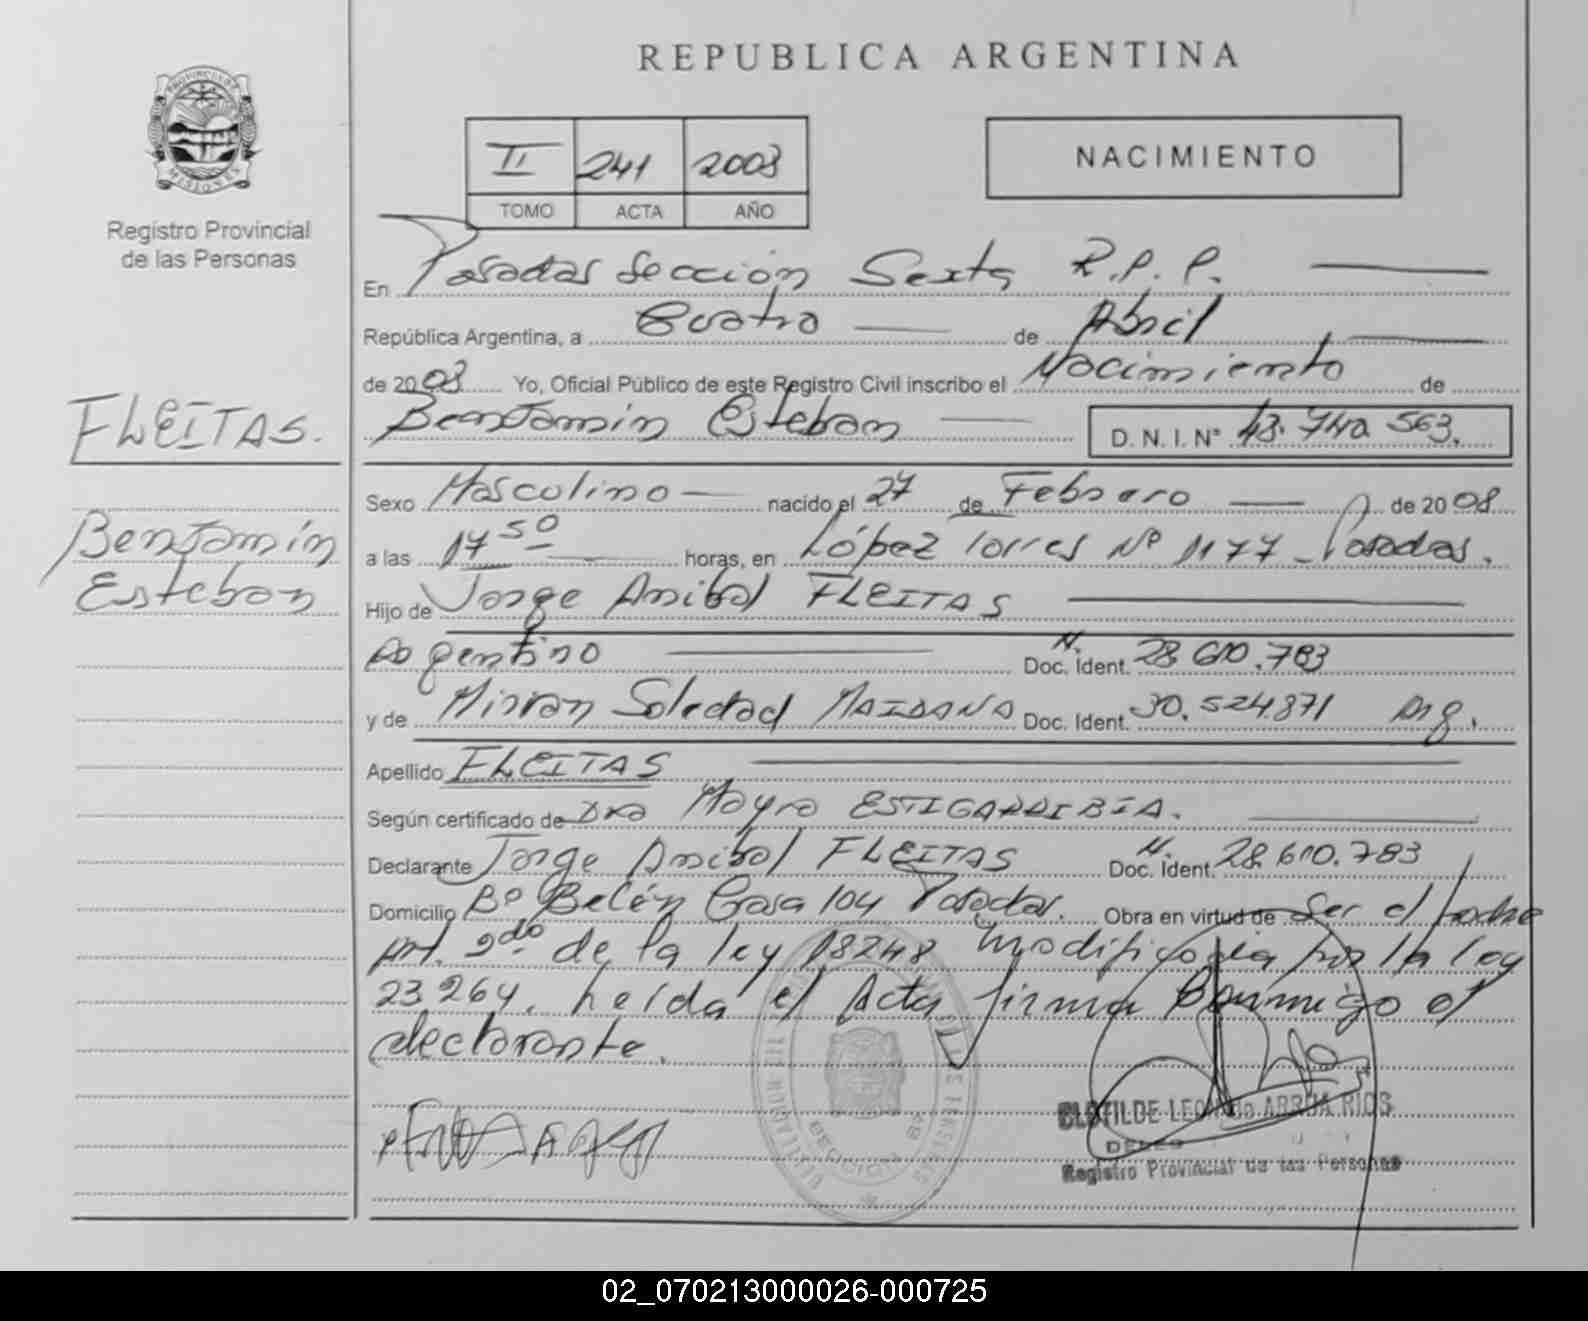 REPUBLICA ARGENTINA
II 241 2008
TOMO ACTA AÑO
NACIMIENTO
PROVINCIA DE MISIONES
Registro Provincial
de las Personas
En Posadas Sección Sexta R.P.P.
República Argentina, a Cuatro de Abril
de 2008 Yo, Oficial Público de este Registro Civil inscribo el Nacimiento de
FLEITAS.
Benjamín Esteban D.N.I.Nº 48.740.563.
Sexo Masculino nacido el 27 de Febrero de 2008
Benjamín
a las 17 50 horas, en López Torres Nº 1177 - Posadas.
Esteban
Hijo de Jorge Anibal FLEITAS
Argentino N. Doc. Ident. 28.610.783
y de Mirian Soledad MAIDANA Doc. Ident. 30.524.871 Arg.
Apellido FLEITAS
Según certificado de Dra Mayra ESTIGARRIBIA.
Declarante Jorge Anibal FLEITAS N. Doc. Ident. 28.610.783
Domicilio Bº Belén Casa 104 Posadas. Obra en virtud de Ser el Padre
Art. 2do. de la ley 18248 modificada por la ley
23264. Leída el Acta firma Conmigo el
declarante.
CLOTILDE ARRUA RIOS
Registro Provincial de las Personas
02_070213000026-000725